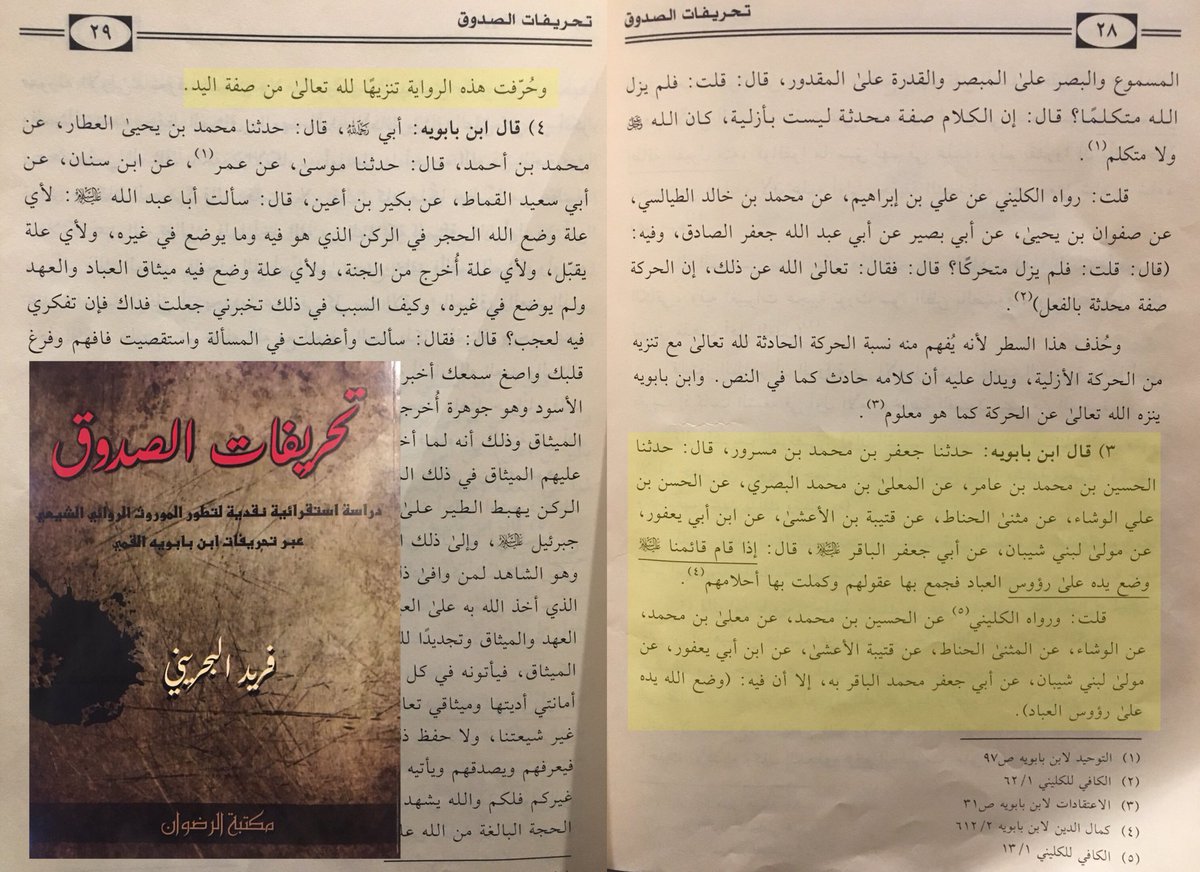 تحريفات الصدوق
٢٨
المسموع والبصر على المبصر والقدرة على المقدور، قال: قلت: فلم يزل
الله متكلمًا؟ قال: إن الكلام صفة محدثة ليست بأزلية، كان الله ﷿
ولا متكلم(١).
قلت: رواه الكليني عن علي بن إبراهيم، عن محمد بن خالد الطيالسي،
عن صفوان بن يحيىٰ، عن أبي بصير عن أبي عبد الله جعفر الصادق، وفيه:
(قال: قلت: فلم يزل متحركًا؟ قال: فقال: تعالىٰ الله عن ذلك، إن الحركة
صفة محدثة بالفعل)(٢).
وحُذف هذا السطر لأنه يُفهم منه نسبة الحركة الحادثة لله تعالىٰ مع تنزيه
من الحركة الأزلية، ويدل عليه أن كلامه حادث كما في النص. وابن بابويه
ينزه الله تعالىٰ عن الحركة كما هو معلوم(٣).
٣) قال ابن بابويه: حدثنا جعفر بن محمد بن مسرور، قال: حدثنا
الحسين بن محمد بن عامر، عن المعلىٰ بن محمد البصري، عن الحسن بن
علي الوشاء، عن مثنىٰ الحناط، عن قتيبة بن الأعشىٰ، عن ابن أبي يعفور،
عن مولىٰ لبني شيبان، عن أبي جعفر الباقر عليه السلام، قال: إذا قام قائمنا عليه السلام
وضع يده علىٰ رؤوس العباد فجمع بها عقولهم وكملت بها أحلامهم(٤).
قلت: ورواه الكليني(٥) عن الحسين بن محمد، عن معلىٰ بن محمد،
عن الوشاء، عن المثنىٰ الحناط، عن قتيبة الأعشىٰ، عن ابن أبي يعفور، عن
مولىٰ لبني شيبان، عن أبي جعفر محمد الباقر به، إلا أن فيه: (وضع الله يده
علىٰ رؤوس العباد).
(١) التوحيد لابن بابويه ص٩٧
(٢) الكافي للكليني ٦٢/١
(٣) الاعتقادات لابن بابويه ص٣١
(٤) كمال الدين لابن بابويه ٦١٢/٢
(٥) الكافي للكليني ١٣/١
تحريفات الصدوق
٢٩
وحُرّفت هذه الرواية تنزيهًا لله تعالىٰ من صفة اليد.
٤) قال ابن بابويه: أبي رحمه الله، قال: حدثنا محمد بن يحيىٰ العطار، عن
محمد بن أحمد، قال: حدثنا موسىٰ، عن عمر(١)، عن ابن سنان، عن
أبي سعيد القماط، عن بكير بن أعين، قال: سألت أبا عبد الله عليه السلام: لأي
علة وضع الله الحجر في الركن الذي هو فيه وما يوضع في غيره، ولأي علة
يقبّل، ولأي علة أُخرج من الجنة، ولأي علة وضع فيه ميثاق العباد والعهد
ولم يوضع في غيره، وكيف السبب في ذلك تخبرني جعلت فداك فإن تفكري
فيه لعجب؟ قال: فقال: سألت وأعضلت في المسألة واستقصيت فافهم وفرغ
قلبك واصغ سمعك أخبر
الأسود وهو جوهرة أُخرج
الميثاق وذلك أنه لما أخ
عليهم الميثاق في ذلك ال
الركن يهبط الطير علىٰ
جبرئيل عليه السلام، وإلىٰ ذلك ا
وهو الشاهد لمن وافىٰ ذ
الذي أخذ الله به علىٰ الع
العهد والميثاق وتجديدًا لل
الميثاق، فيأتونه في كل
أمانتي أديتها وميثاقي تعا
غير شيعتنا، ولا حفظ ذ
فيعرفهم ويصدقهم ويأتيه
غيركم فلكم والله يشهد
الحجة البالغة من الله عل
تحريفات الصدوق
دراسة استقرائية نقدية لتطور الموروث الروائي الشيعي
عبر تحريفات ابن بابويه القمي
فريد البحريني
مكتبة الرضوان